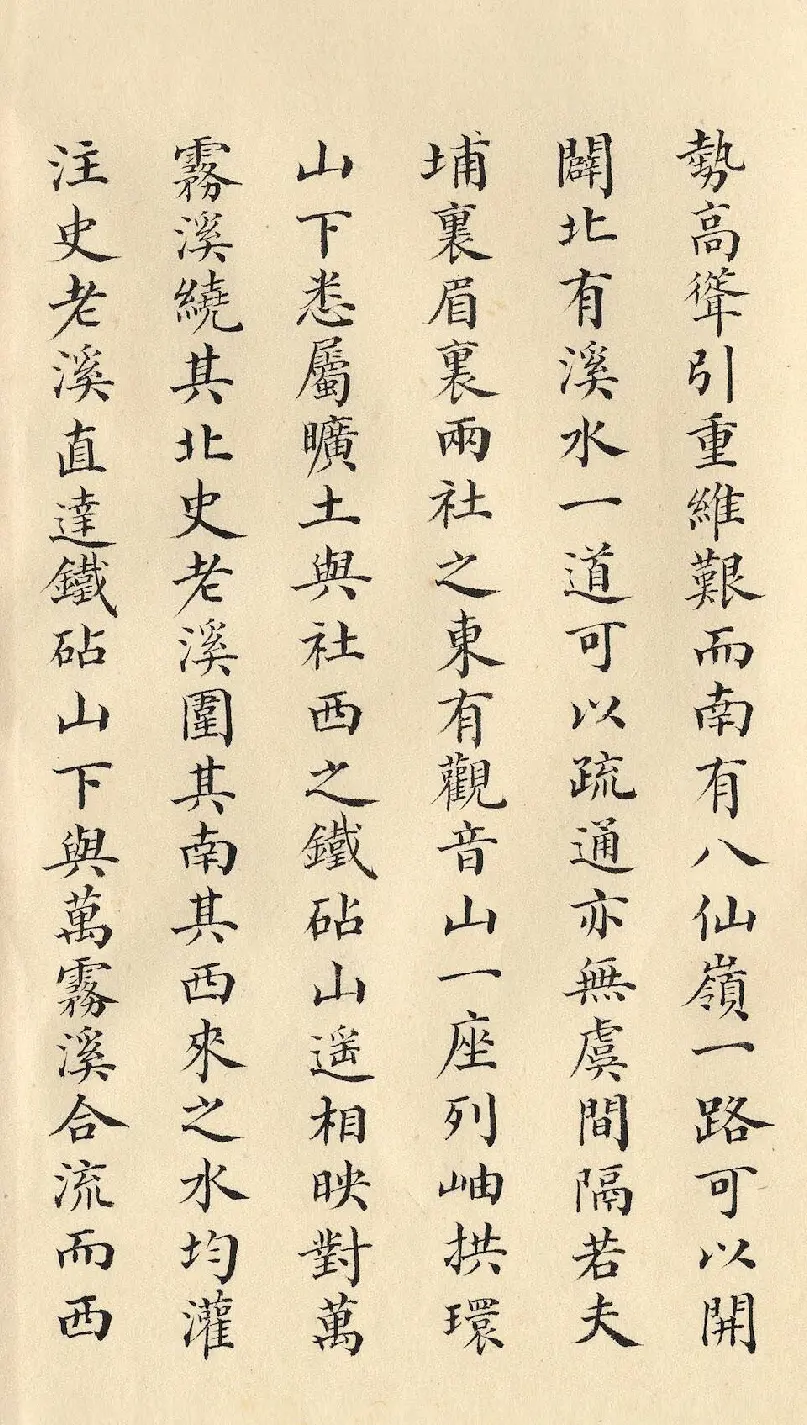 勢高聳引重維艱而南有八仙嶺一路可以開
闢北有溪水一道可以疏通亦無虞間隔若夫
埔裏眉裏兩社之東有觀音山一座列岫拱環
山下悉屬曠土與社西之鐵砧山遥相映對萬
霧溪繞其北史老溪圍其南其西來之水均灌
注史老溪直達鐵砧山下與萬霧溪合流而西